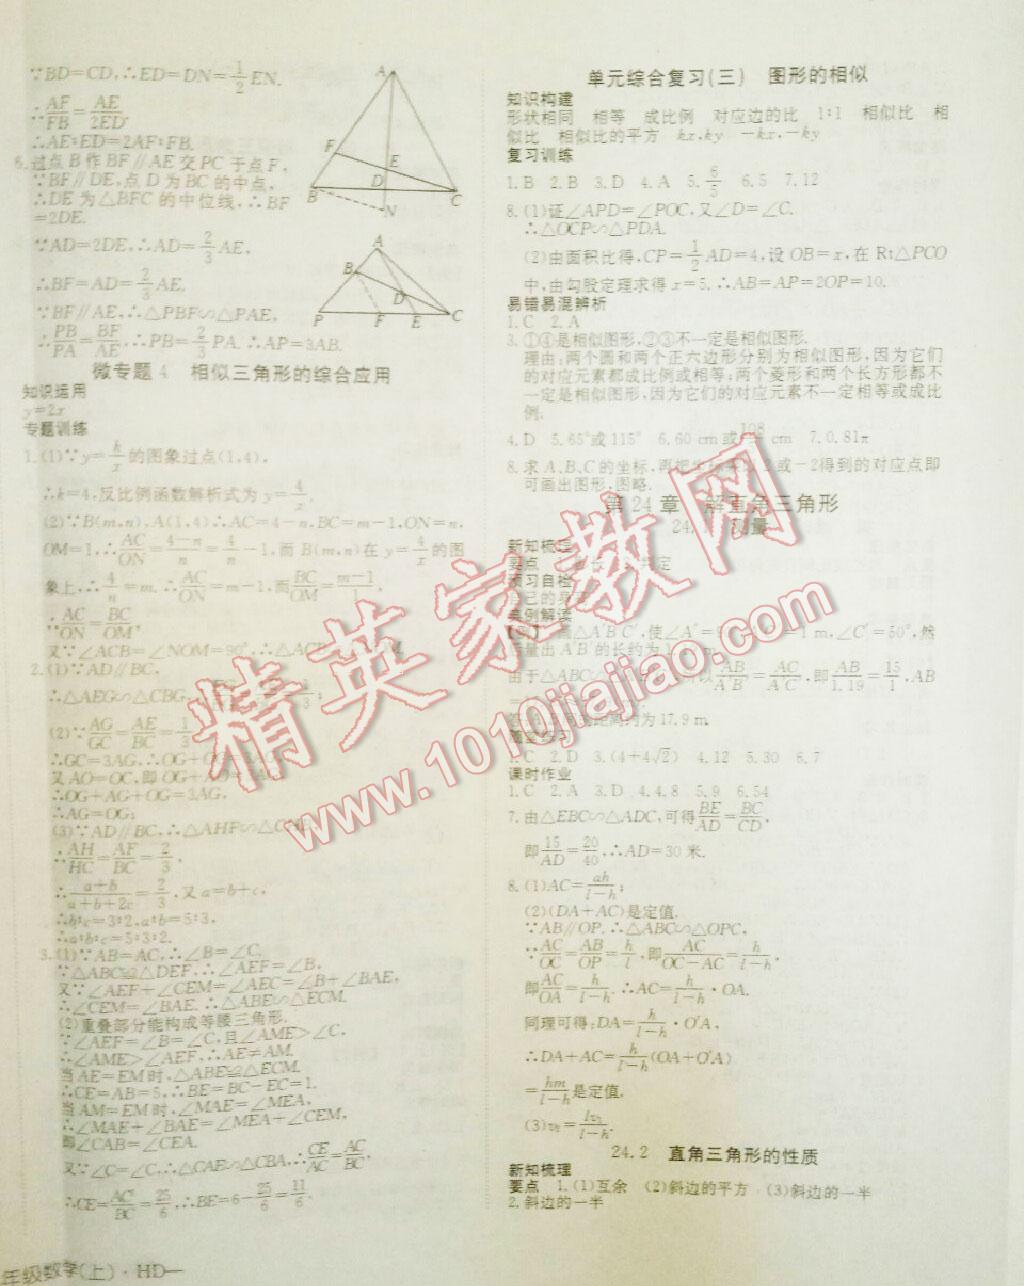 ∵BD=CD,∴ED=DN=1/2EN.
∵AF/FB=AE/2ED,
∴AE∶ED=2AF∶FB.
6.过点B作BF∥AE交PC于点F,
∵BF∥DE,点D为BC的中点,
∴DE为△BFC的中位线,∴BF
=2DE.
∵AD=2DE,∴AD=2/3AE,
∴BF=AD=2/3AE,
∵BF∥AE,∴△PBF∽△PAE,
∴PB/PA=BF/AE,∴PB=2/3PA.∴AP=3AB.
A
F
E
B
D
C
N
A
B
D
P
F
E
C
微专题4 相似三角形的综合应用
知识运用
y=2x
专题训练
1.(1)∵y=k/x的图象过点(1,4),
∴k=4,反比例函数解析式为y=4/x.
(2)∵B(m,n),A(1,4)∴AC=4-n,BC=m-1,ON=n,
OM=1,∴AC/ON=(4-n)/n=4/n-1,而B(m,n)在y=4/x的图
象上,∴4/n=m,∴AC/ON=m-1,而BC/OM=(m-1)/1,
∴AC/ON=BC/OM,
又∵∠ACB=∠NOM=90°,∴△ACB
2.(1)∵AD∥BC,
∴△AEG∽△CBG,
(2)∵AG/GC=AE/BC=1/3
∴GC=3AG,∴OG+OC
又AO=OC,即OG+A
∴OG+AG+OG=3AG,
∴AG=OG;
(3)∵AD∥BC,∴△AHF∽△C
∵AH/HC=AF/BC=2/3,
∴(a+b)/(a+b+2c)=2/3,又a=b+c,
∴b∶c=3∶2,a∶b=5∶3,
∴a∶b∶c=5∶3∶2.
3.(1)∵AB=AC,∴∠B=∠C,
∵△ABC≌△DEF,∴∠AEF=∠B,
又∵∠AEF+∠CEM=∠AEC=∠B+∠BAE,
∴∠CEM=∠BAE.∴△ABE∽△ECM.
(2)重叠部分能构成等腰三角形.
∵∠AEF=∠B=∠C,且∠AME>∠C,
∴∠AME>∠AEF,∴AE≠AM.
当AE=EM时,△ABE≌△ECM.
∴CE=AB=5,∴BE=BC-EC=1.
当AM=EM时,∠MAE=∠MEA,
∴∠MAE+∠BAE=∠MEA+∠CEM,
即∠CAB=∠CEA.
又∵∠C=∠C,∴△CAE∽△CBA,∴CE/AC=AC/BC,
∴CE=AC²/BC=25/6,∴BE=6-25/6=11/6.
年级数学(上)·HD—
单元综合复习(三) 图形的相似
知识构建
形状相同 相等 成比例 对应边的比 1∶1 相似比 相
似比 相似比的平方 kx,ky -kx,-ky
复习训练
1.B 2.B 3.D 4.A 5.6/5 6.5 7.12
8.(1)证∠APD=∠POC,又∠D=∠C.
∴△OCP∽△PDA.
(2)由面积比得,CP=1/2AD=4,设OB=x,在Rt△PCO
中,由勾股定理求得x=5,∴AB=AP=2OP=10.
易错易混辨析
1.C 2.A
3.①④是相似图形,②③不一定是相似图形.
理由:两个圆和两个正六边形分别为相似图形,因为它们
的对应元素都成比例或相等;两个菱形和两个长方形都不
一定是相似图形,因为它们的对应元素不一定相等或成比
例.
4.D 5.65°或115° 6.60 cm或108 cm 7.0.81π
8.求A、B、C的坐标,再把 2或-2得到的对应点即
可画出图形,图略.
第24章 解直角三角形
24. 测量
新知梳理
要点
预习自检
自己的
典例解读
画△A′B′C′,使∠A′=9 =1 m,∠C′=50°,然
后量出A′B′的长约为1.
由于△ABC∽ 所以AB/A′B′=AC/A′C′,即AB/1.19=15/1,AB
约为17.9 m.
随堂练习
1.C 2.D 3.(4+4√2) 4.12 5.30 6.7
课时作业
1.C 2.A 3.D 4.4.8 5.9 6.54
7.由△EBC∽△ADC,可得BE/AD=BC/CD,
即15/AD=20/40,∴AD=30米.
8.(1)AC=ah/(l-h);
(2)(DA+AC)是定值.
∵AB∥OP,∴△ABC∽△OPC,
∵AC/OC=AB/OP=h/l,即AC/(OC-AC)=h/(l-h),
即AC/OA=h/(l-h).∴AC=h/(l-h)·OA.
同理可得:DA=h/(l-h)·O′A,
∴DA+AC=h/(l-h)(OA+O′A)
=hm/(l-h)是定值.
24.2 直角三角形的性质
新知梳理
要点 1.(1)互余 (2)斜边的平方 (3)斜边的一半
2.斜边的一半
精英家教网
www.1010jiajiao.com